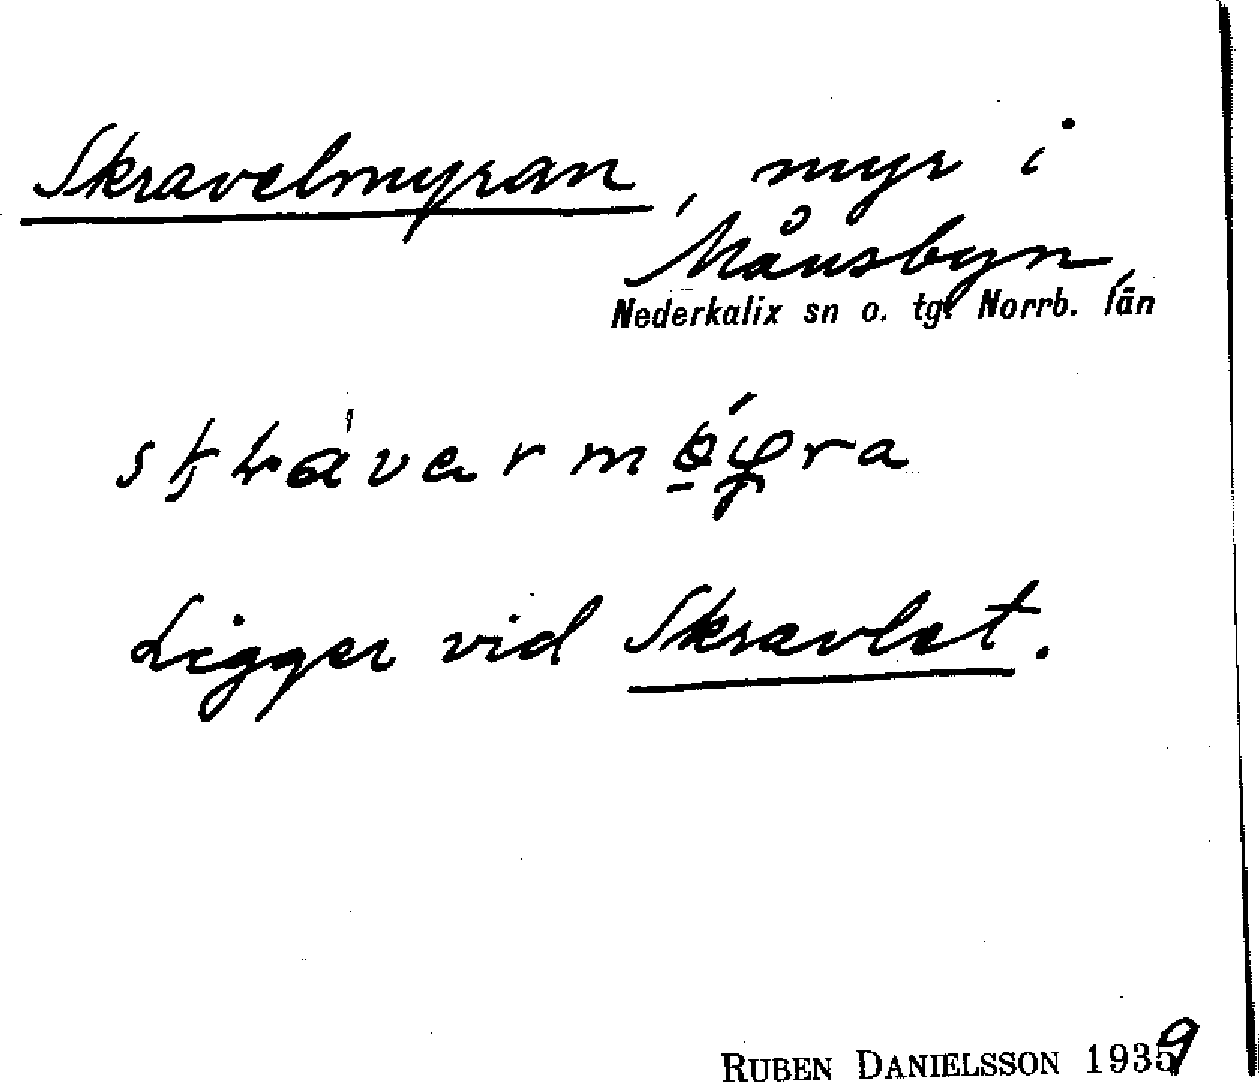 Skravelmyran, myr i
Månsbyn,
Nederkalix sn o. tg. Norrb. län
Ligger vid Skravlet.
RUBEN DANIELSSON 1939